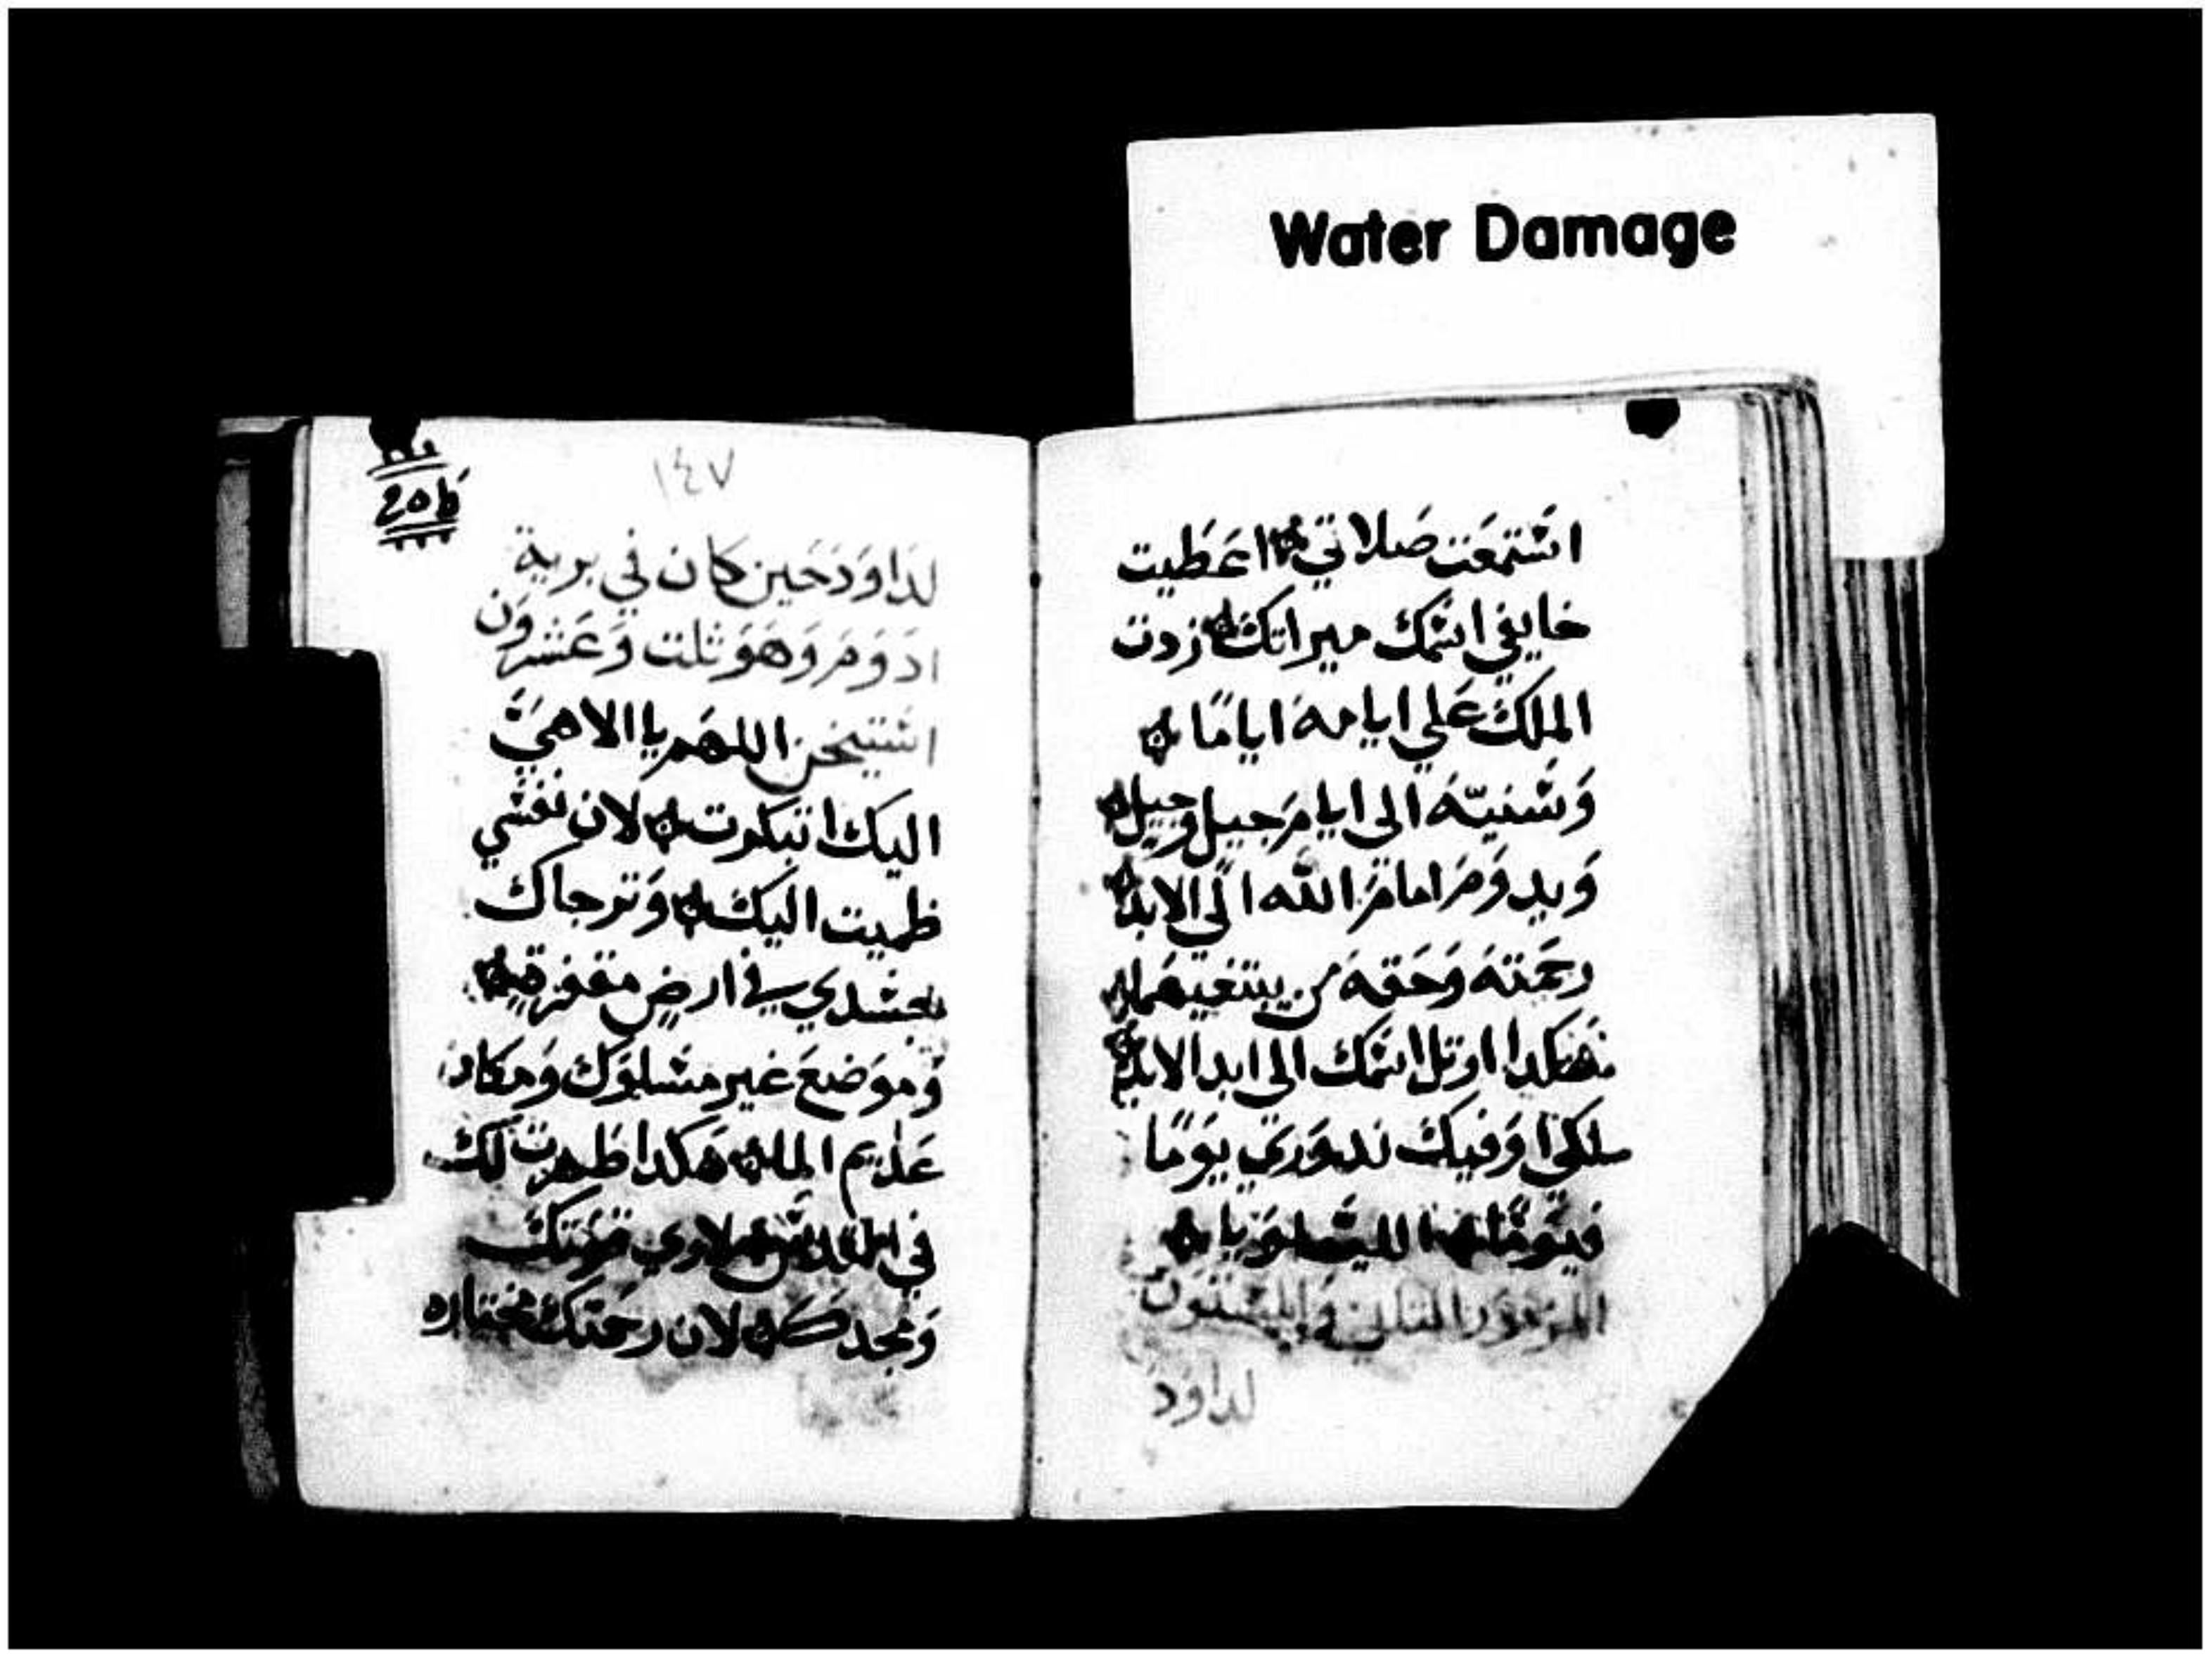 Water Damage
استمعت صلاتي اعطيت
خايفي اسمك ميراتك زدت
الملك علي ايامه اياما
وسنيه الى ايام جيل وجيل
ويدوم امام الله الي الابد
رحمته وحقه من يبتغيهما
هكدا اوتل اسمك الى ابد الابد
وفيك ندوري يوما
المزمور التاني والستون
لداود
١٤٧
لداود حين كان في برية
ادوم وهو ثلت وعشرون
اللهم يا الاهي
اليك اتبكرت لان نفسي
ظميت اليك وترجاك
جسدي في ارض مقفرة
وموضع غير مسلوك ومكان
عديم الما هكدا ظهرت لك
في القدس لاري قوتك
ومجدك لان رحمتك مختاره